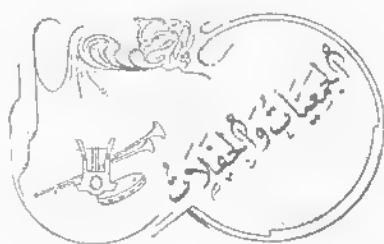 الجمعيَّاتُ وَالحفَلَاتُ